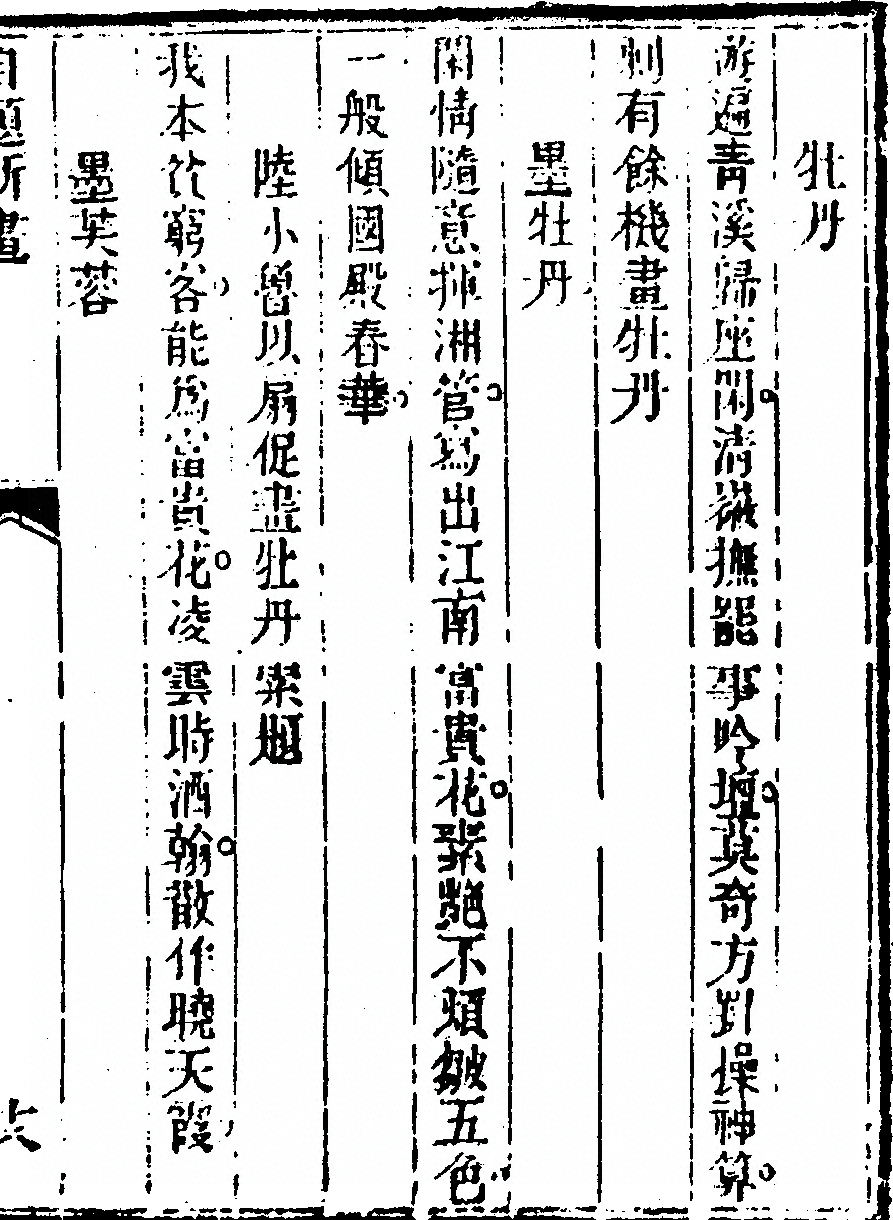 牡丹
游遍青溪歸座閑清徽撫罷事吟壇莫奇方對操神算
剩有餘機畫牡丹
墨牡丹
閑情隨意揮湘管寫出江南富貴花紫艷不煩皴五色
一般傾國殿春華
陸小魯以扇促畫牡丹索題
我本窮客能為富貴花凌雲時洒翰散作曉天霞
墨芙蓉
自題所畫
六